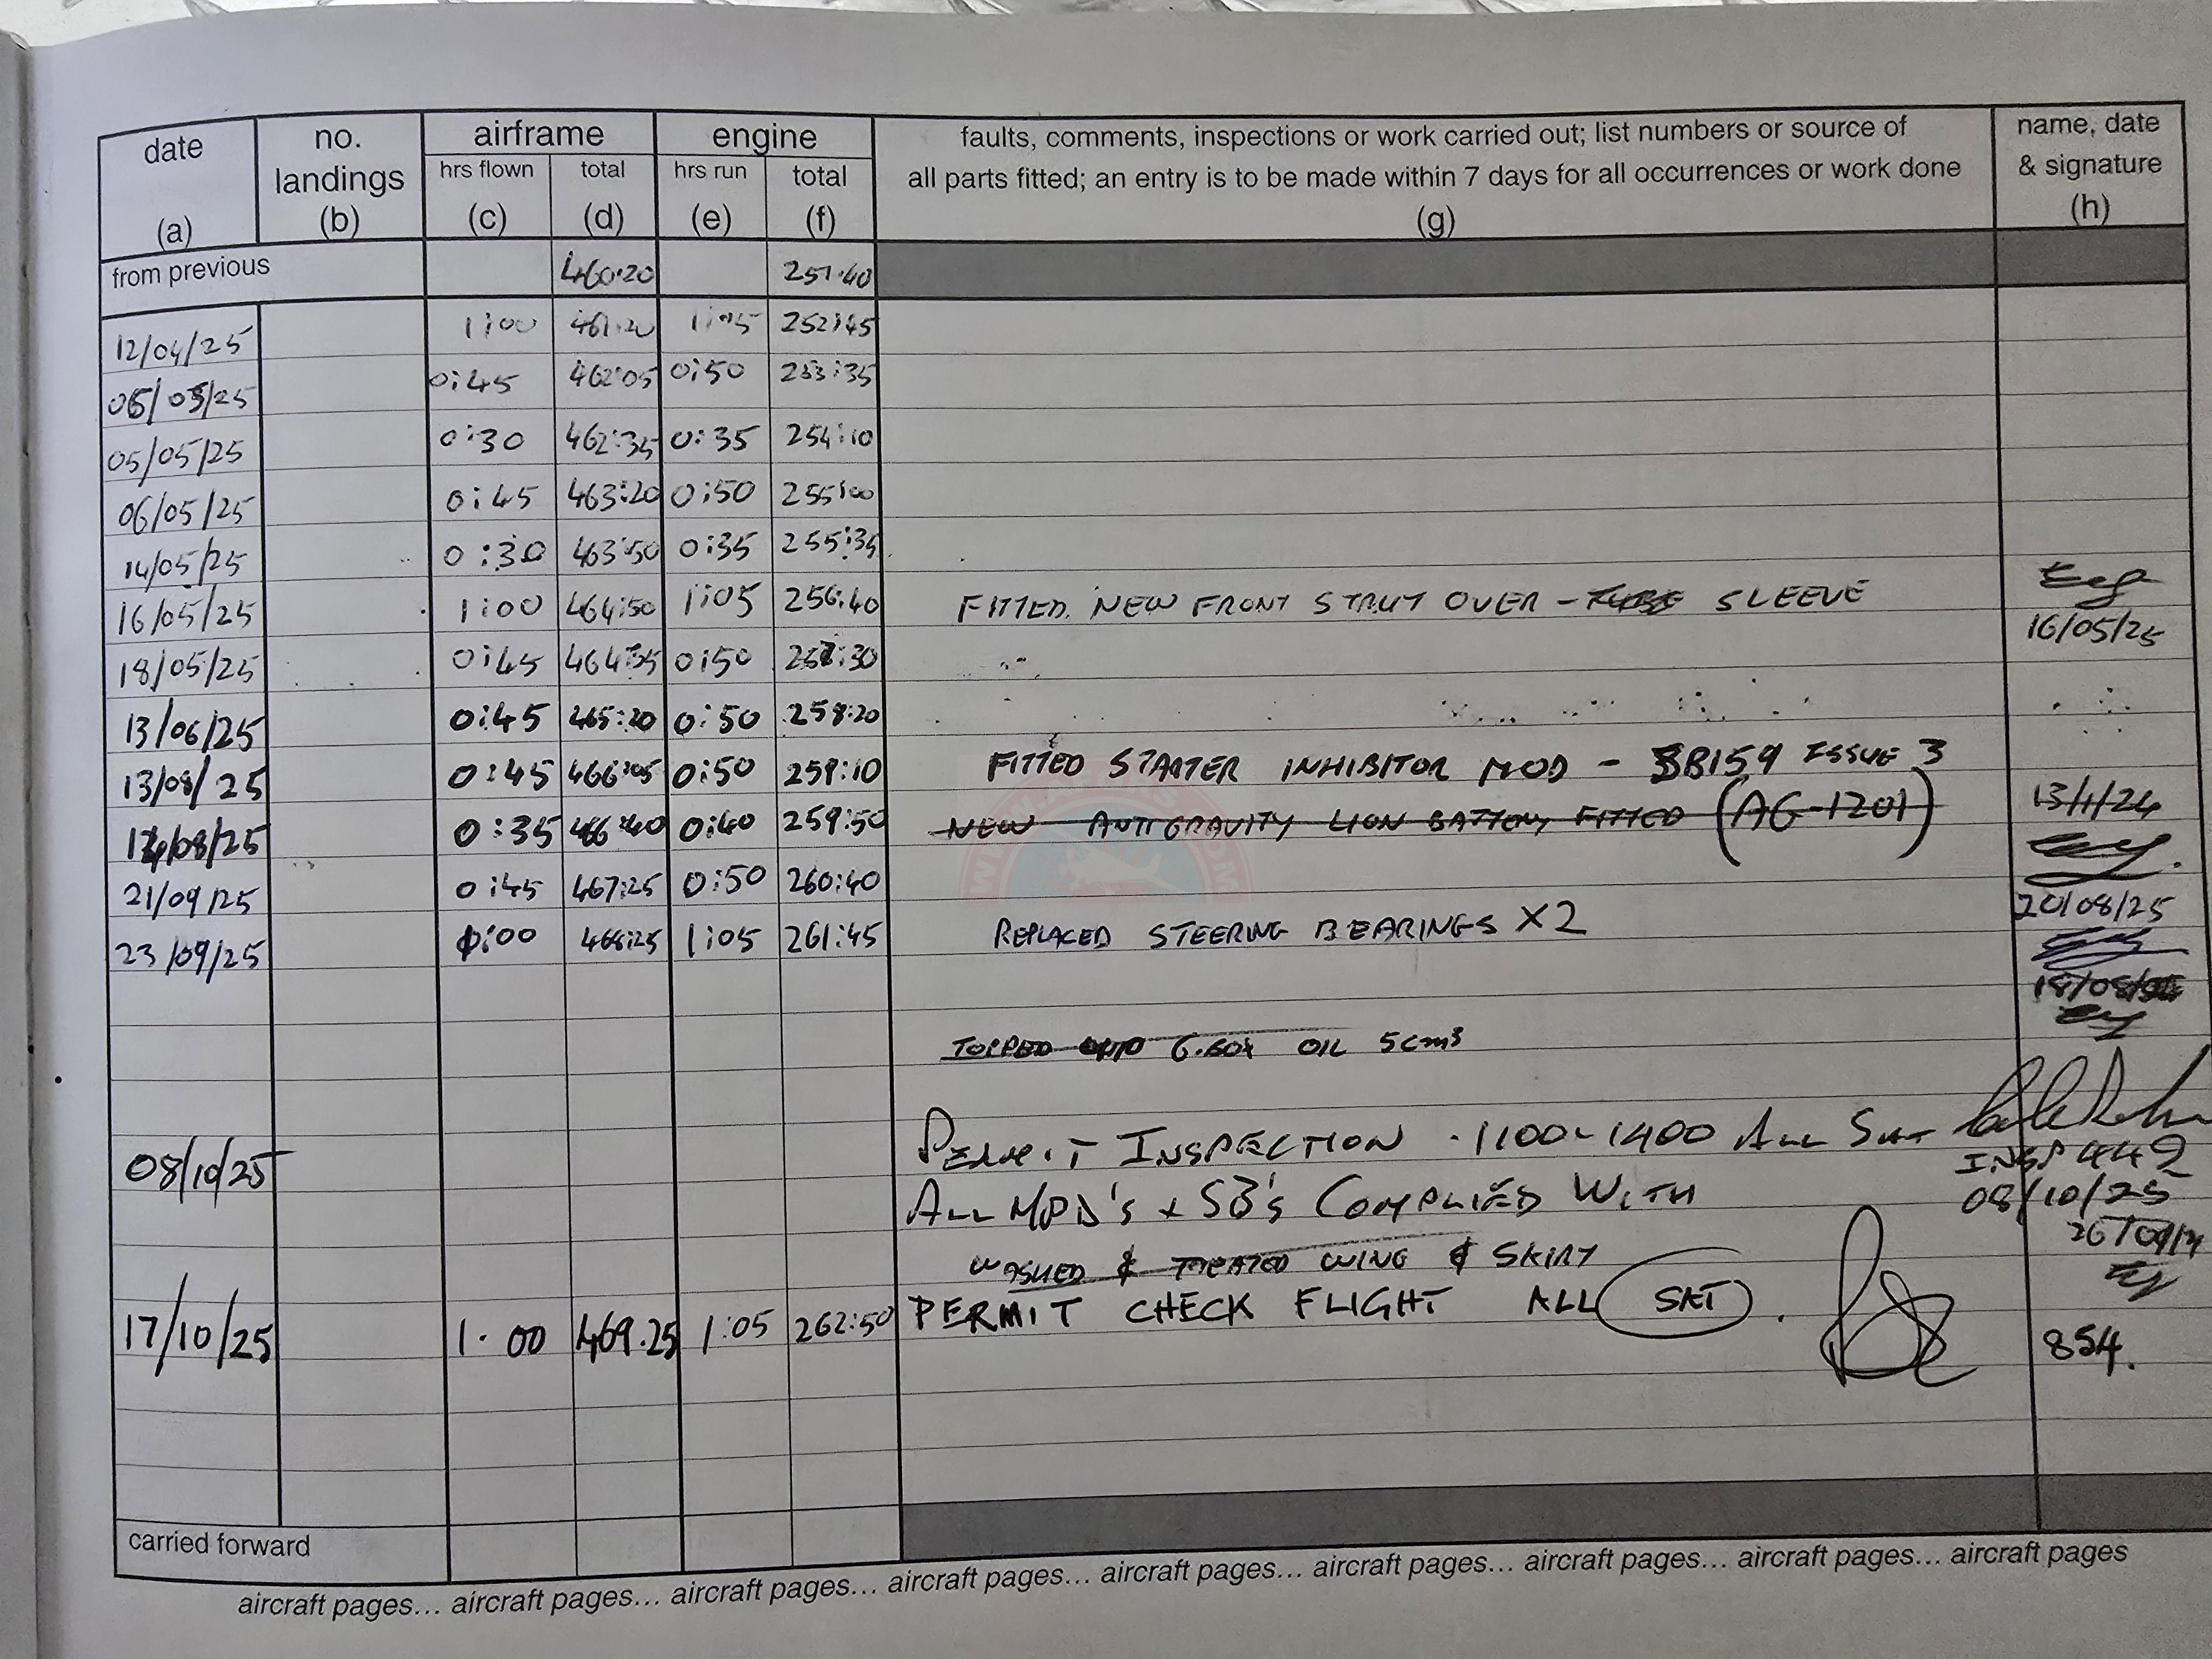 date no. landings airframe engine faults, comments, inspections or work carried out; list numbers or source of name, date
hrs flown total hrs run total all parts fitted; an entry is to be made within 7 days for all occurrences or work done & signature
(a) (b) (c) (d) (e) (f) (g) (h)
from previous 460:20 251:40
12/04/25 1:00 461:20 1:05 252:45
05/25 0:45 462:05 0:50 253:35
05/05/25 0:30 462:35 0:35 254:10
06/05/25 0:45 463:20 0:50 255:00
14/05/25 0:30 463:50 0:35 255:35
16/05/25 1:00 464:50 1:05 256:40 FITTED NEW FRONT STRUT OVER - TUBE SLEEVE
16/05/25
18/05/25 0:45 464:35 0:50 257:30
13/06/25 0:45 465:20 0:50 258:20
13/08/25 0:45 466:05 0:50 259:10 FITTED STARTER INHIBITOR MOD - SB159 ISSUE 3
13/11/24
14/08/25 0:35 466:40 0:40 259:50 NEW ANTIGRAVITY LION BATTERY FITTED (AG-1201)
21/09/25 0:45 467:25 0:50 260:40
20/08/25
23/09/25 1:00 468:25 1:05 261:45 REPLACED STEERING BEARINGS X2
TOPPED UP OIL 5cm³
08/10/25 PERMIT INSPECTION 1100-1400 ALL SAT
INSP 449
ALL MPD's + SB's COMPLIED WITH
08/10/25
WASHED & TREATED WING & SKIRT
17/10/25 1.00 469.25 1:05 262:50 PERMIT CHECK FLIGHT ALL SAT.
854.
carried forward
aircraft pages... aircraft pages... aircraft pages... aircraft pages... aircraft pages... aircraft pages... aircraft pages... aircraft pages... aircraft pages